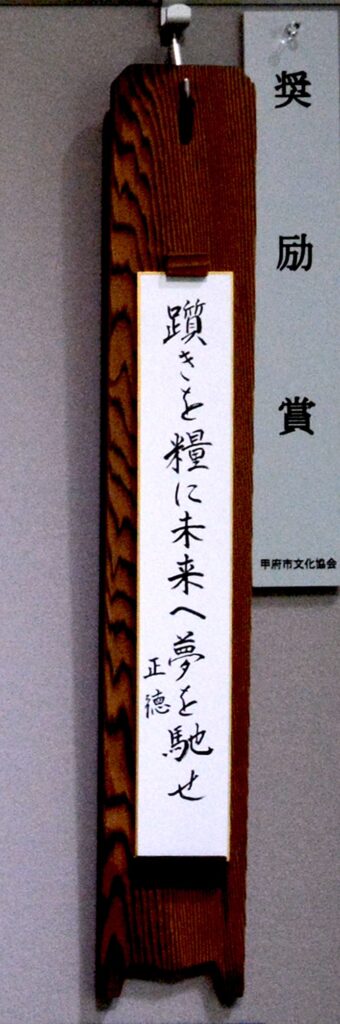 奨励賞
甲府市文化協会
躓きを糧に未来へ夢を馳せ
正徳